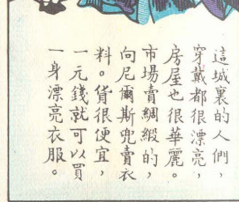 這城裏的人們，
穿戴都很漂亮，
房屋也很華麗。
市場賣綢緞的，
向尼爾斯兜賣衣
料。貨很便宜，
一元錢就可以買
一身漂亮衣服。